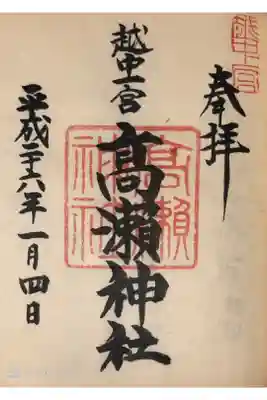 奉拝
越中一宮
高瀬神社
平成二十六年一月四日
越中一宮
高瀬神社